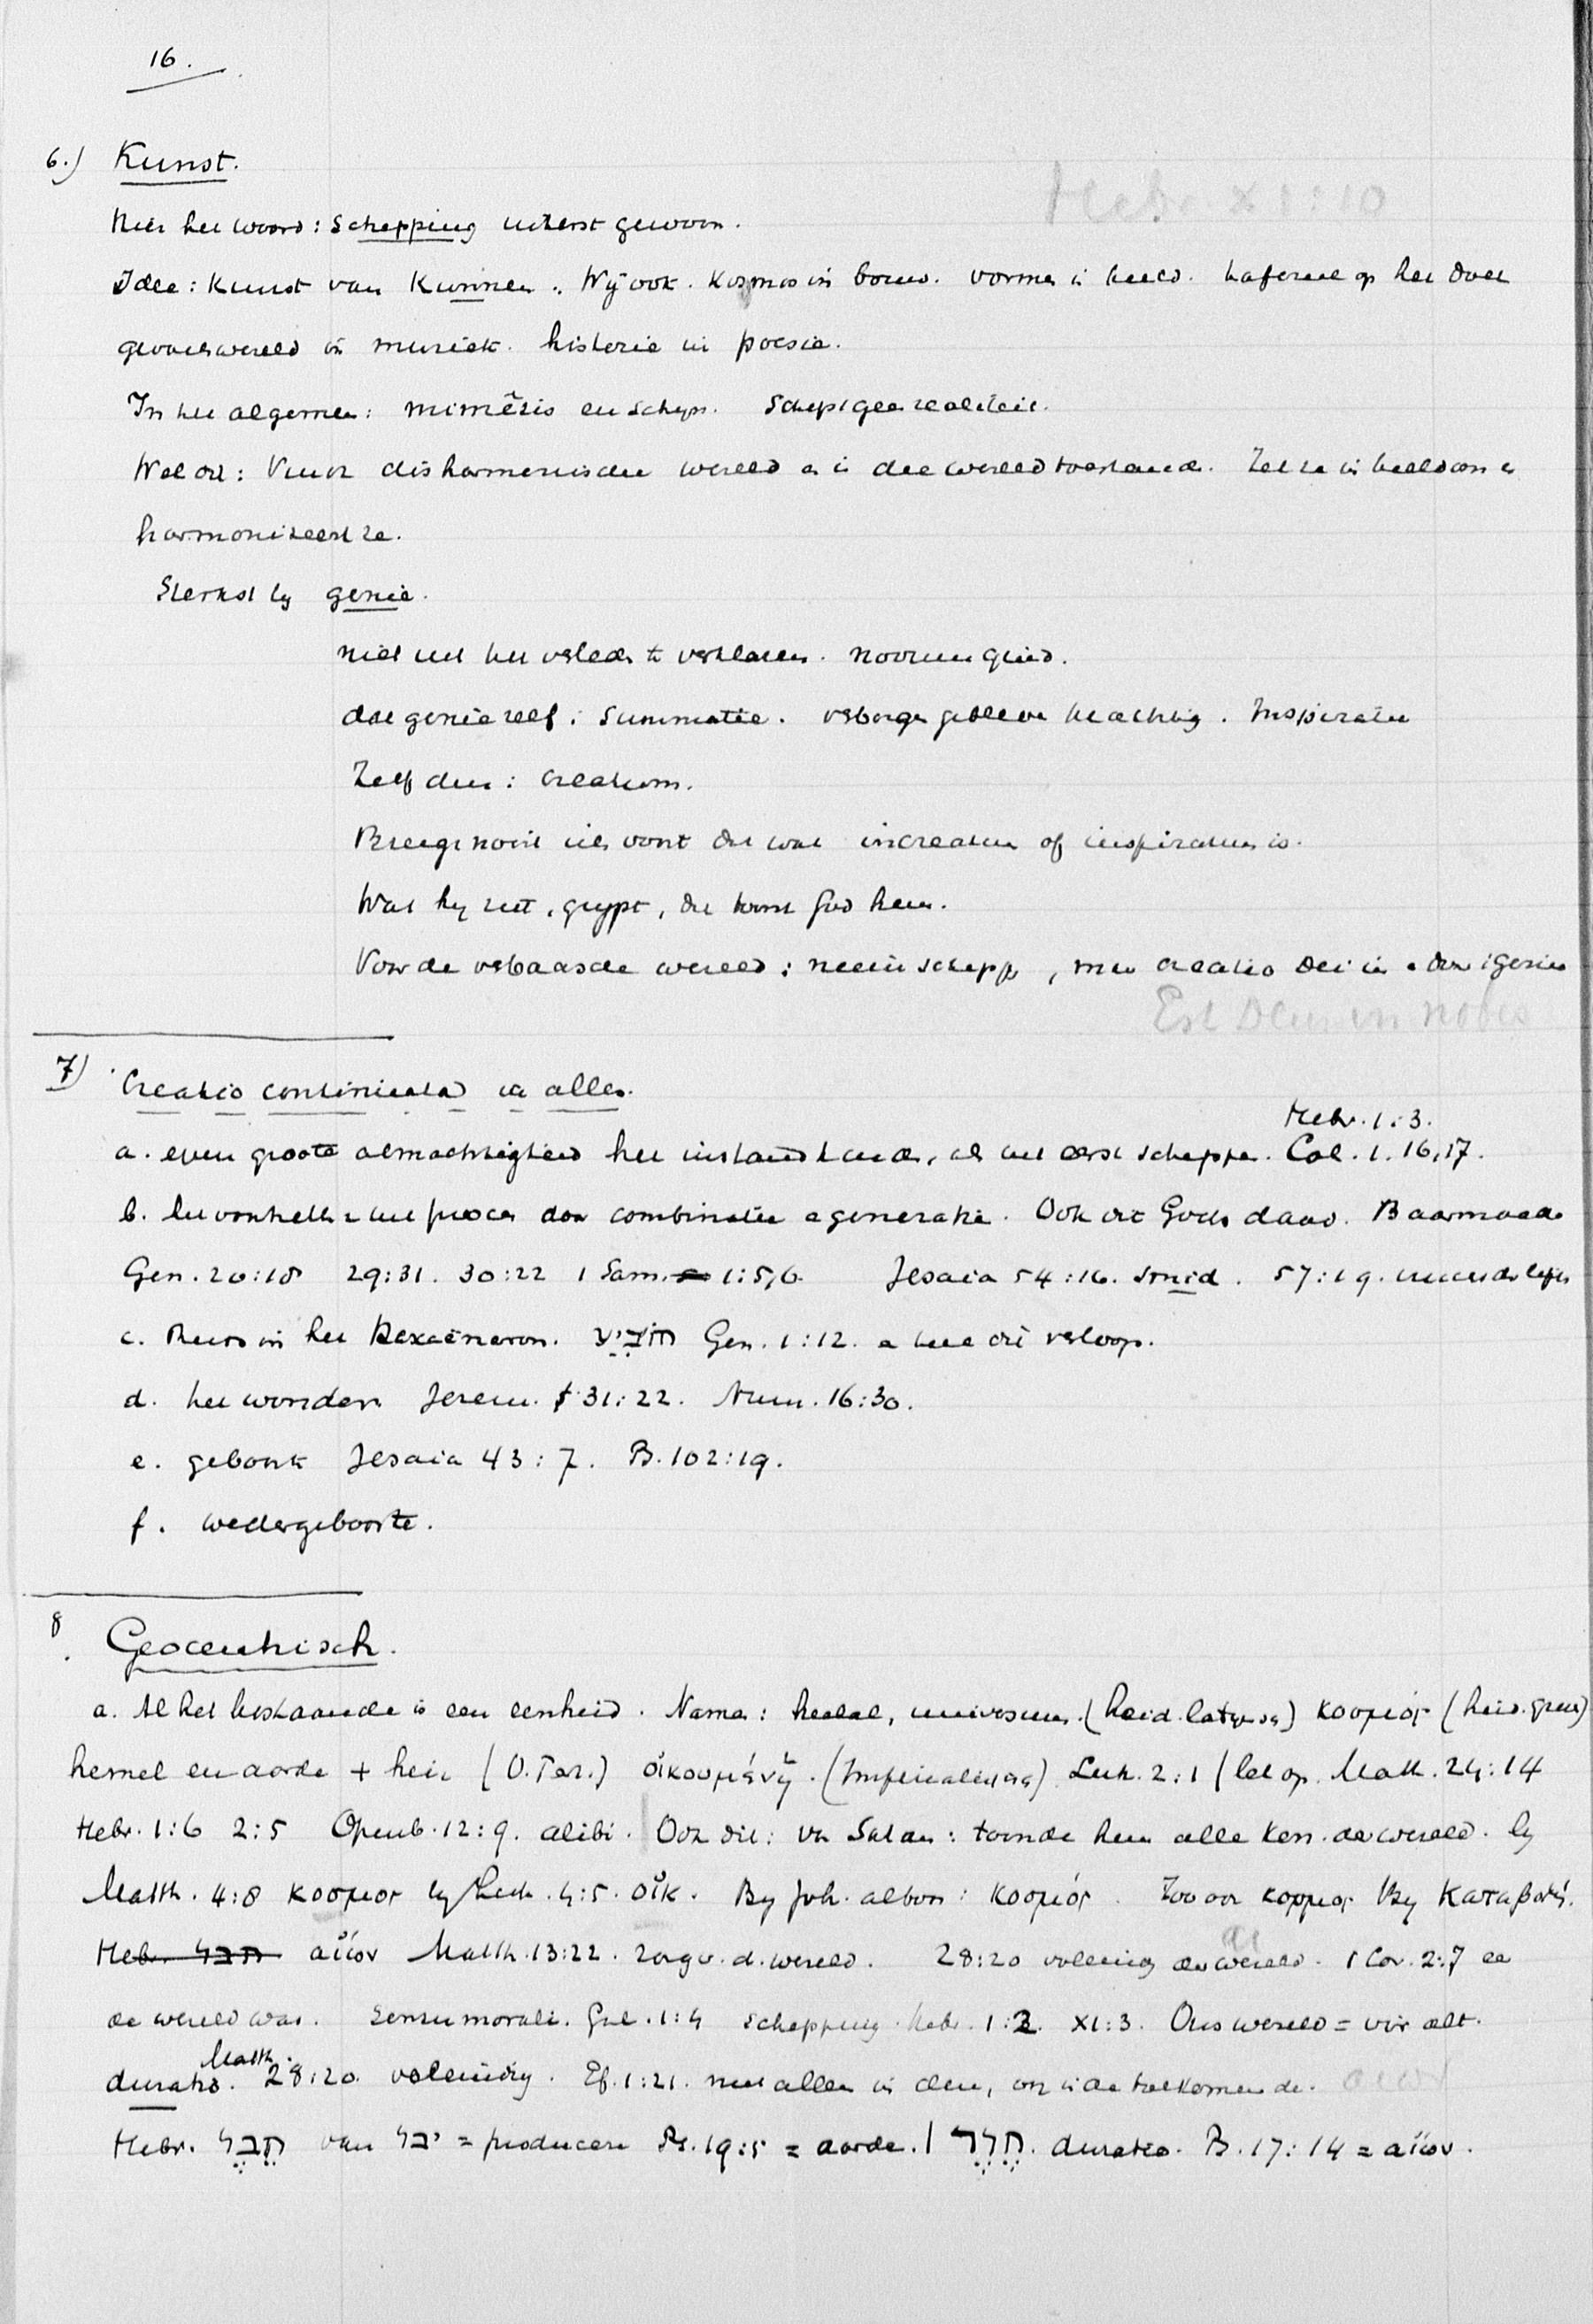 16.
6.) Kunst.
Hebr XI:10
Hier het woord: Schepping uiterst gewoon.
Idee: Kunst van Kunnen. Wij ook. Kosmos in bouw. vormen in beeld. tafereel op het doek
gevoelswereld in muziek. historie in poesie.
In het algemeen: mimēsis en schijn. Schept geen realiteit.
Wel dit: Vindt disharmonische wereld en in die wereld toestand. Zet ze in beeld om en
harmoniseert ze.
Sterkst bij genie.
niet uit het verleden te verklaren. novum quid.
dat genie zelf: summatie. verborgen gebleven. Inspiratie
Zelf dus: creatum.
Brengt nooit iets voort dat niet increatum of inspiratum is.
Wat hij ziet, grijpt, dat toont God hem.
Voor de verbaasde wereld: nieuw schepp, maar creatio Dei in en door 't genie
Est Deus in nobis
7) Creatio continuata in alles.
Hebr. 1:3.
a. even groote almachtigheid het instandhouden, als het eerst scheppen. Col. 1.16,17.
b. het voortzetten het proces door combinatie en generatie. Ook dit Gods daad. Baarmoeder
Gen. 20:18 29:31. 30:22 1 Sam. 1:5,6. Jesaia 54:16. smid. 57:19. der lippen
c. Reeds in het Hexaëmeron. Gen. 1:12. en heel dit verloop.
d. het wonder Jerem. 31:22. Num. 16:30.
e. geboorte Jesaia 43:7. Ps. 102:19.
f. wedergeboorte.
8. Geocentrisch.
a. Al het bestaande is een eenheid. Namen: heelal, universum (heid. latijnsch) κοσμός (heid. grieksch)
hemel en aarde + heir (O. Tes.) οἰκουμένη. Luk. 2:1 / let op. Matt. 24:14
Hebr. 1:6 2:5 Openb. 12:9. alibi. Ook dit: van Satan: toonde hem alle kon. der wereld. bij
Matth. 4:8 κοσμος bij Luk. 4:5. οἰκ. Bij Joh. altoos: κοσμός. Zoo ook κοσμος bij καταβολή.
Hebr. תבל αἰων Matth. 13:22. zorg v. d. wereld. 28:20 voleinding der wereld. 1 Cor. 2:7 eer
de wereld was. Sensu morali. Gal. 1:4 schepping Hebr. 1:2. XI:3. Ons wereld = wir alt.
duratio. Matth. 28:20. voleinding. Ef. 1:21. niet alleen in deze, ook in de toekomende.
Hebr. תֵבֵל van יבל = producere Ps. 19:5 = aarde. | חֶלֶד. duratio. Ps. 17:14 = αἰων.